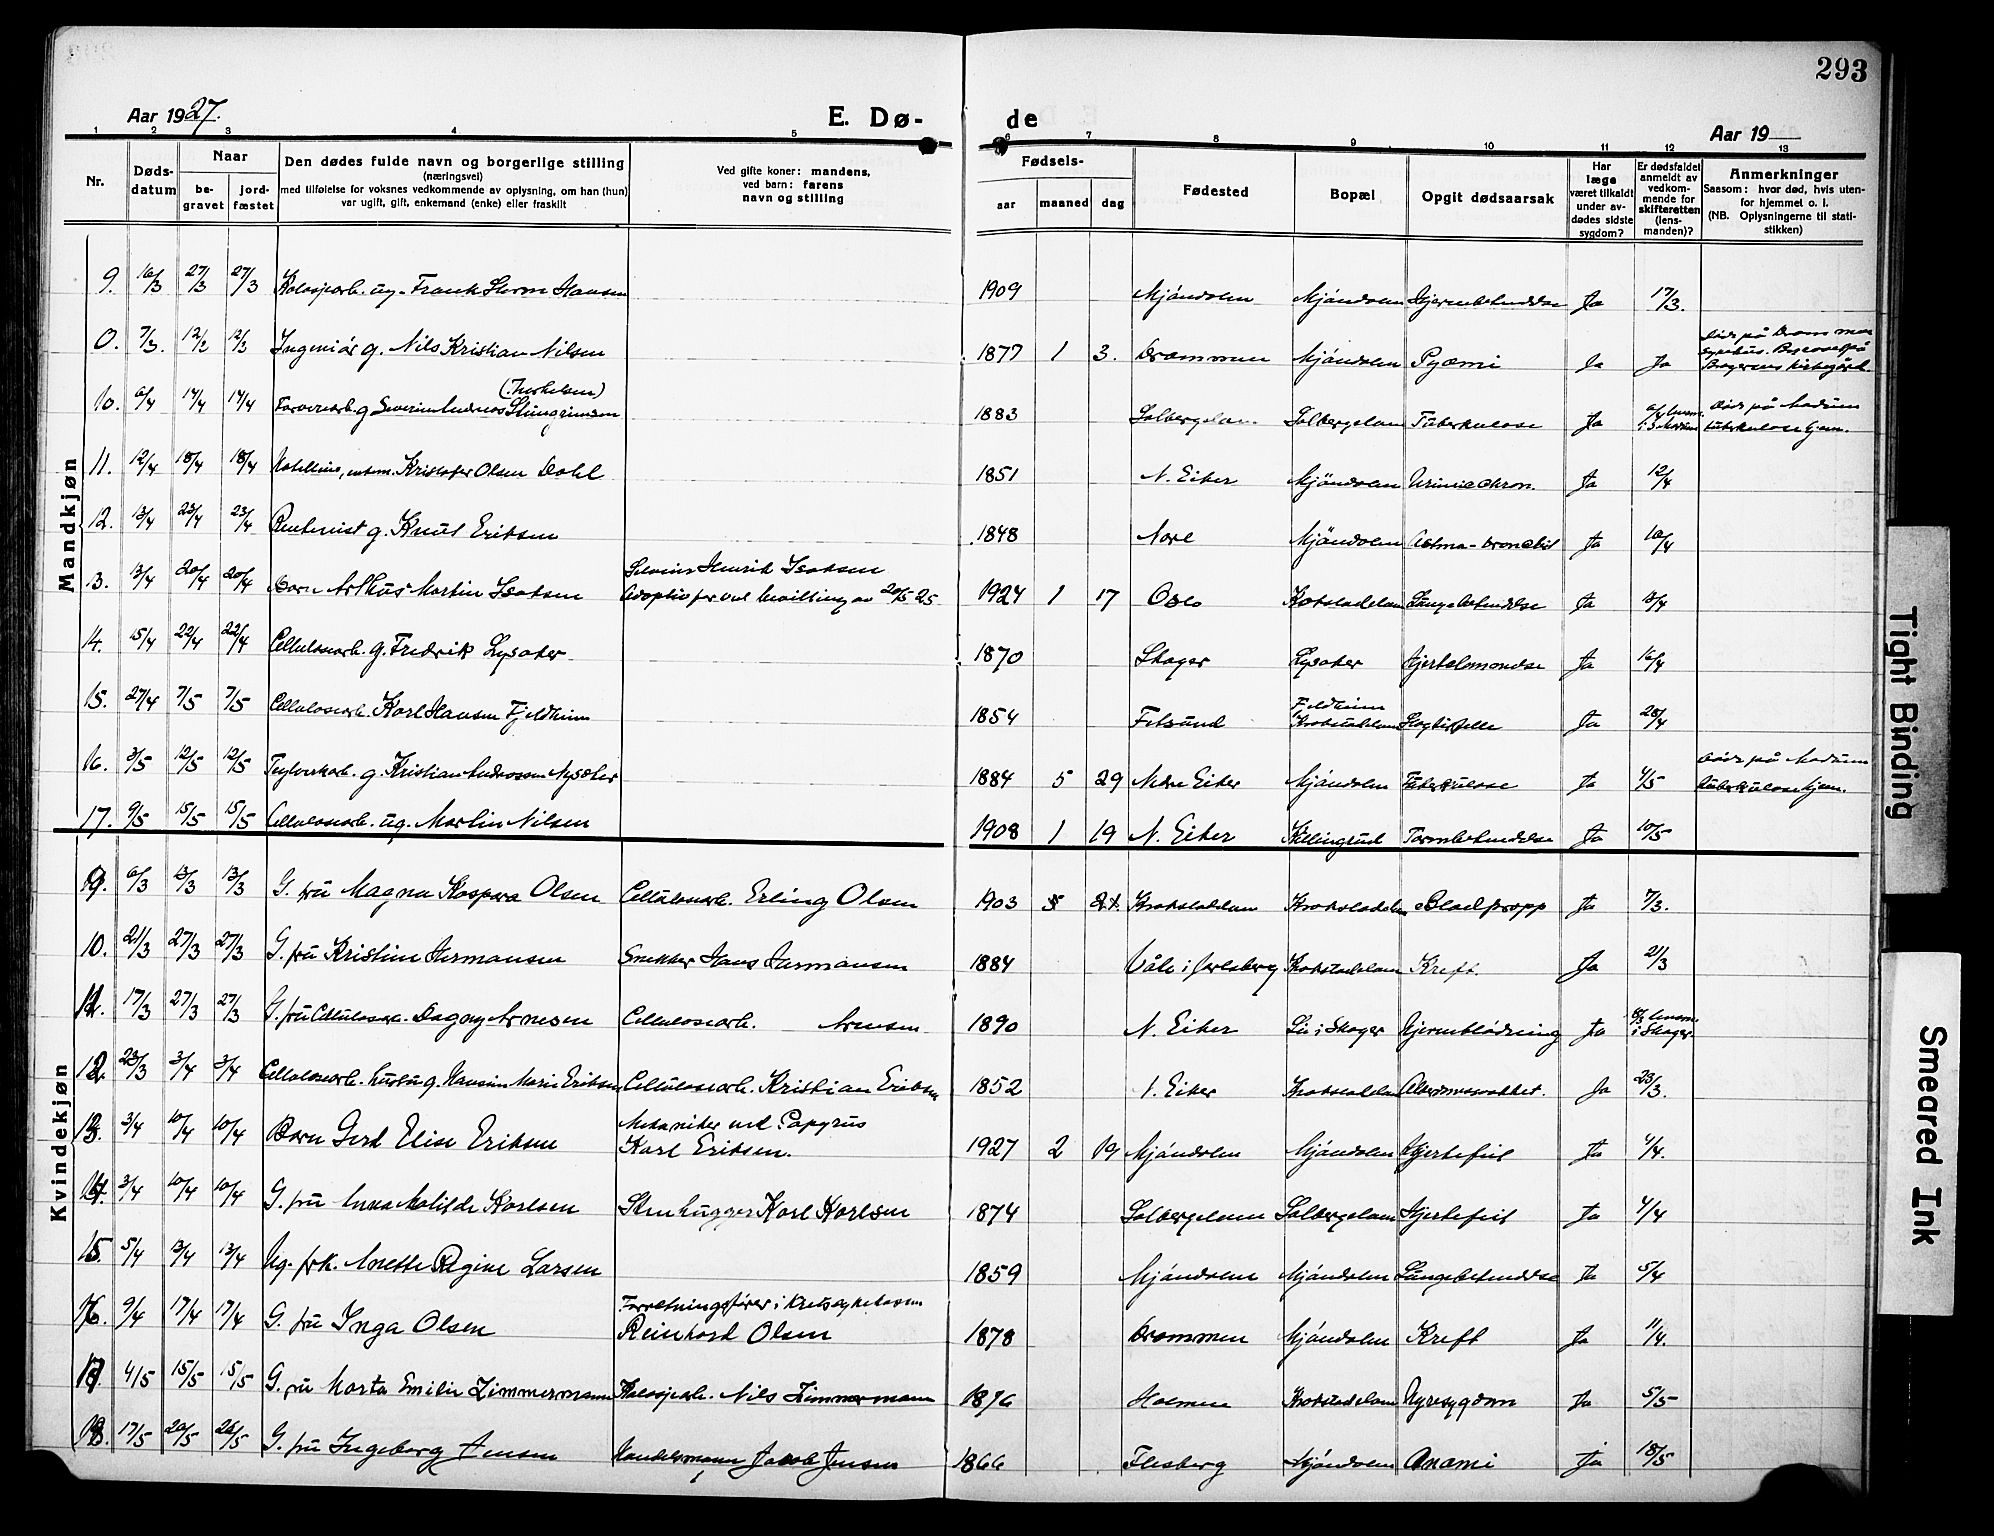 293
Aar 1927.
E. Dø-
de
Aar 19
1 2 3 4 5 6 7 8 9 10 11 12 13
Nr.
Døds-
datum
Naar
be-
gravet
jord-
fæstet
Den dødes fulde navn og borgerlige stilling
(næringsvei)
med tilføielse for voksnes vedkommende av oplysning, om han (hun)
var ugift, gift, enkemand (enke) eller fraskilt
Ved gifte koner: mandens,
ved barn: farens
navn og stilling
Fødsels-
aar
maaned
dag
Fødested
Bopæl
Opgit dødsaarsak
Har
læge
været tilkaldt
under av-
dødes sidste
sygdom?
Er dødsfaldet
anmeldt av
vedkom-
mende for
skifteretten
(lens-
manden)?
Anmerkninger
Saasom: hvor død, hvis uten-
for hjemmet o. l.
(NB. Oplysningerne til stati-
stikken)
Mandkjøn
9. 16/3 27/3 27/3 ug. Frank Hansen 1909 Mjøndalen Mjøndalen Hjernebetendelse Ja 17/3.
0. 7/3. 12/3 12/3 Ingeniør g. Nils Kristian Nilsen 1877 1 3. Drammen Mjøndalen Pyæmi Ja Ja
Død på Drammen
sykehus. Begravet på
Bragernes kirkegård
10. 6/4 14/4 14/4 g Severin Andreas Steingrimsen 1883 Solbergelven Solbergelven Tuberkulose Ja
Død på Modum
tuberkulosehjem.
11. 12/4 18/4 18/4 Kristofer Olsen Dahl 1851 N. Eiker Mjøndalen Ja 12/4
12. 13/4 23/4 23/4 g. Knut Eriksen 1848 Nore Mjøndalen Astma-bronchit Ja 16/4
13. 13/4 20/4 20/4 Barn Arthur Martin Isaksen
Henrik Isaksen
Adoptivfar ved bevilling av 20/5 25. 1924 1 17 Oslo Krokstadelven Lungebetendelse Ja
14. 15/4 22/4 22/4 Cellulosearb. g. Fredrik Lysaker 1870 Skoger Lysaker Ja 16/4
15. 27/4 7/5 7/5 Cellulosearb. Karl Hansen Fjeldheim 1854 Filsund Fjeldheim
Krokstadelven Slagtilfelle Ja 28/4
16. 3/5 12/5 12/5 Teglverksarb. g. Kristian Andreassen Nysæter 1884 5 29 Nedre Eiker Mjøndalen Tuberkulose Ja 4/5
Død på Modum
tuberkulosehjem.
17. 9/5 15/5 15/5 Cellulosearb. ug. Martin Nilsen 1908 1 19 N. Eiker Killingrud Tarmbetendelse Ja 10/5
Kvindekjøn
9. 6/3 13/3 13/3 G. fru Magna Kaspara Olsen Cellulosearb. Erling Olsen 1903 Krokstadelven Krokstadelven Blodpropp Ja 7/3.
10. 21/3 27/3 27/3 G. fru Kristine Hermansen Snekker Hans Hermansen 1884 Våle i Jarlsberg Krokstadelven Kreft. Ja 21/3
11. 17/3 27/3 27/3 G. fru Cellulosearb. Dagny Arnesen Cellulosearb. Arnesen 1890 N. Eiker Lie i Skoger Hjerneblødning Ja
i Skoger
12. 23/3 3/4 3/4 Cellulosearb. hustru g. Hansine Marie Eriksen Cellulosearb. Kristian Eriksen 1852 N. Eiker Krokstadelven Alderdomssvakhet. Ja 23/3.
13. 3/4 10/4 10/4 Barn Gerd Elise Eriksen Mekaniker ved Papyrus
Karl Eriksen. 1927 2 19 Mjøndalen Mjøndalen Hjertefeil Ja 4/4.
14. 3/4 10/4 10/4 G. fru Anna Matilde Karlsen Stenhugger Karl Karlsen 1874 Solbergelven Solbergelven Hjertefeil Ja 4/4
15. 5/4 13/4 13/4 Ug. frk. Anette Regine Larsen 1859 Mjøndalen Mjøndalen Lungebetendelse Ja 5/4
16. 9/4 17/4 17/4 G. fru Inga Olsen Forretningsfører i Kretssykekassen
Reinhard Olsen 1878 Drammen Mjøndalen Kreft Ja 11/4.
17. 4/5 15/5 15/5 G. fru Marta Emilie Zimmermann Nils Zimmermann 1896 Holmen Krokstadelven Nyresygdom Ja 5/5
18. 17/5 20/5 G. fru Ingeborg Jensen Handelsmann Jacob Jensen 1866 Flesberg Mjøndalen Anæmi Ja 18/5
Tight Binding
Smeared Ink